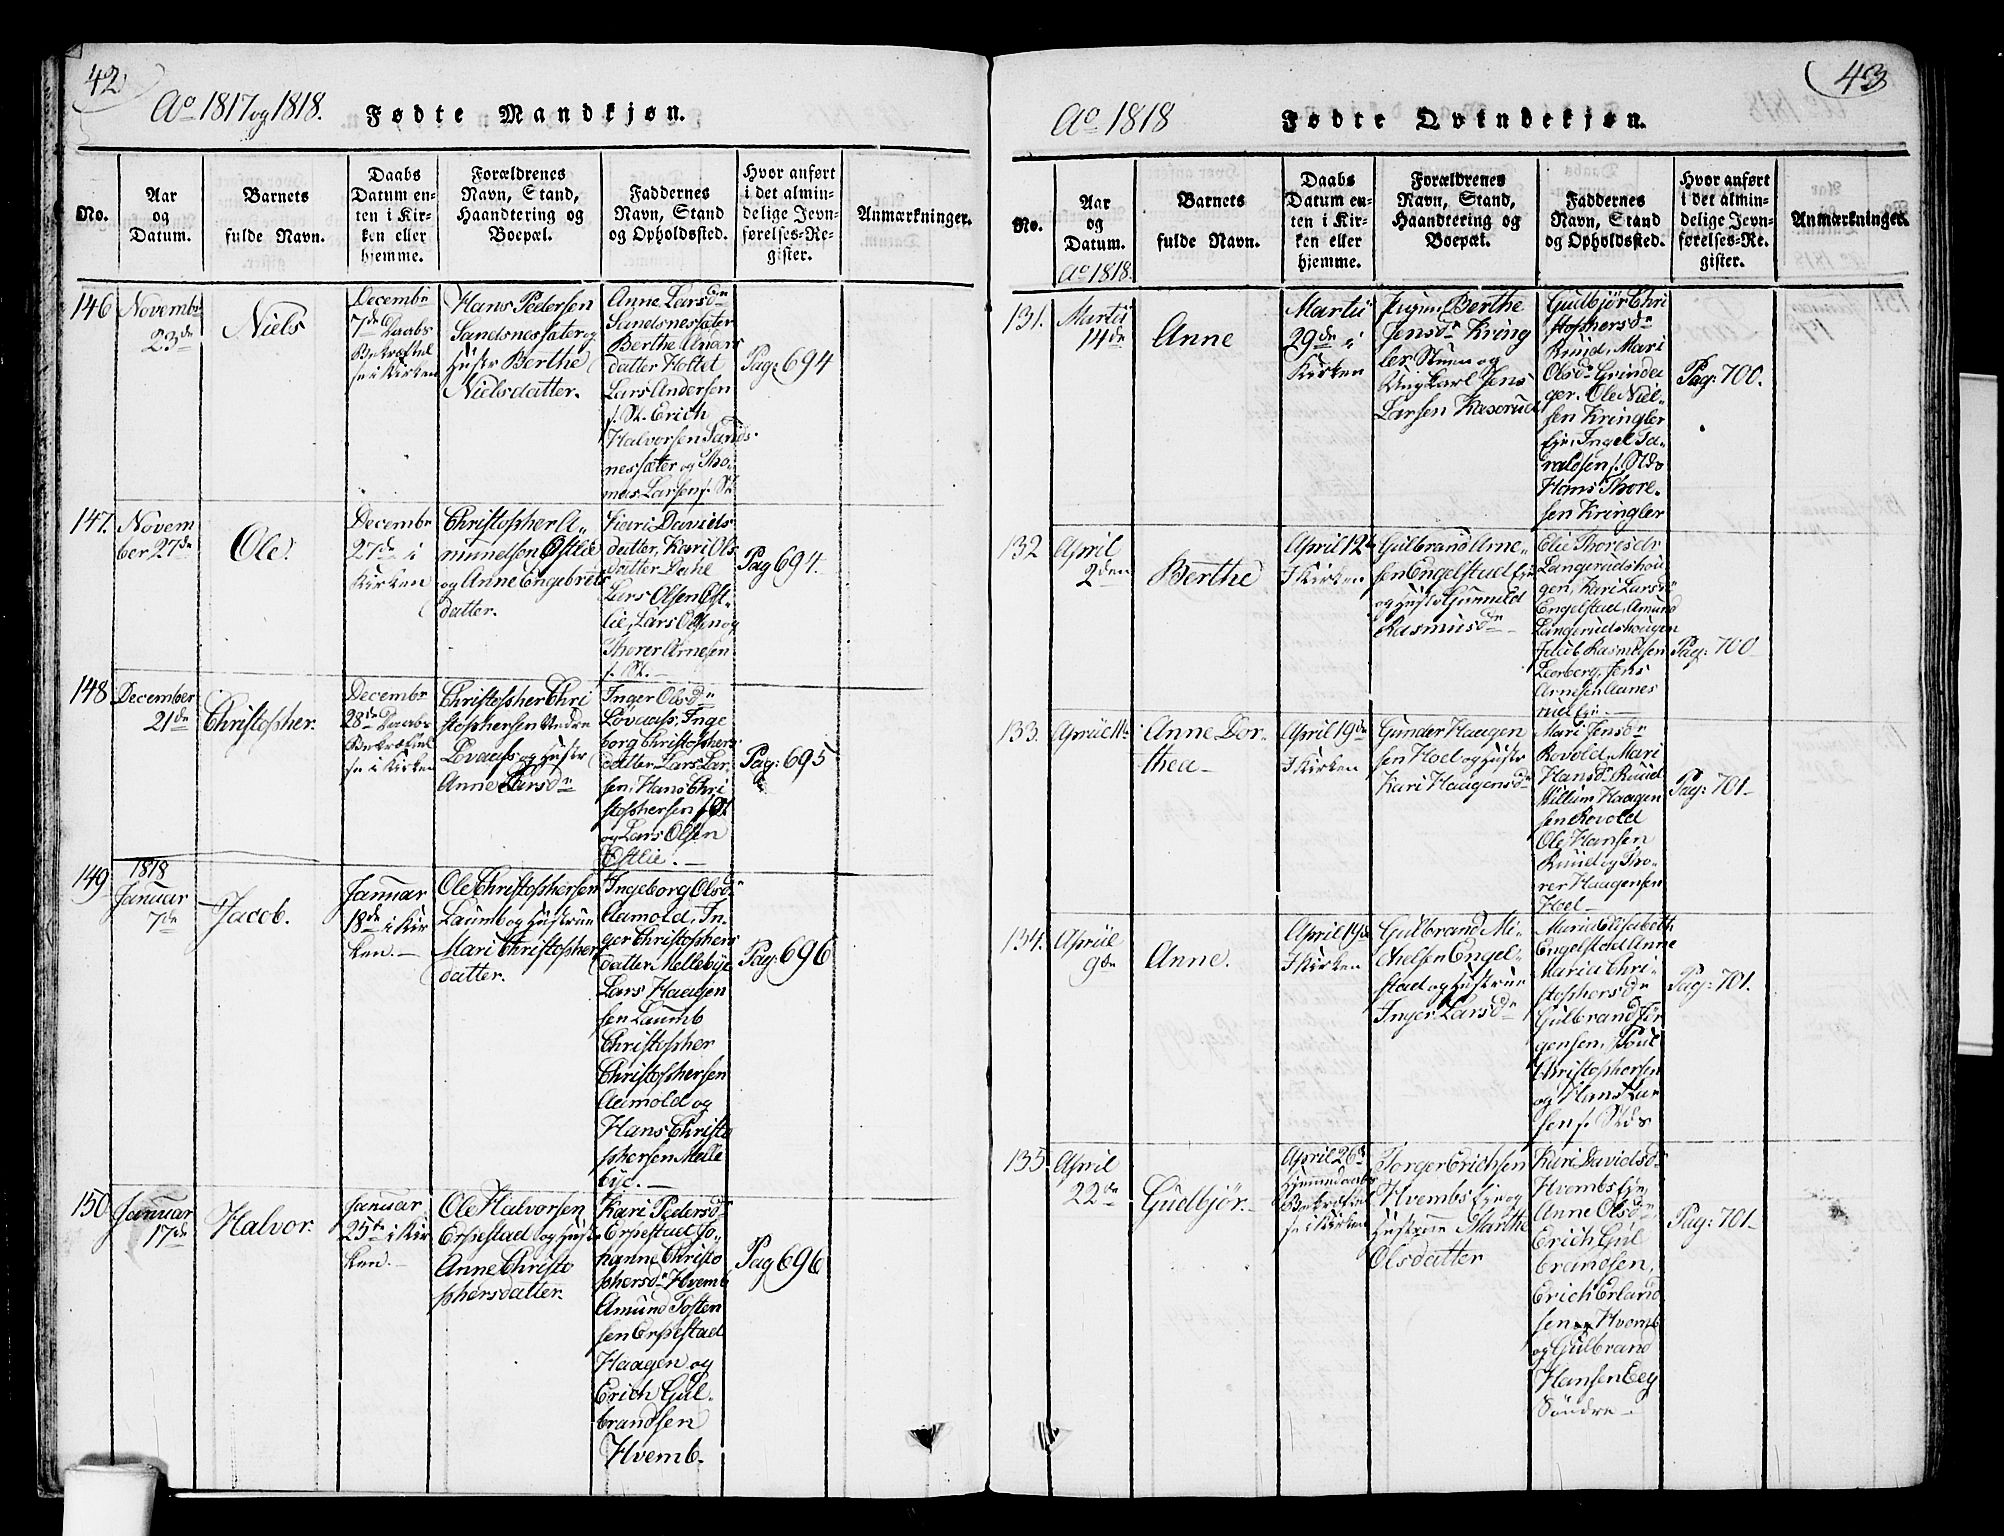 42
Ao 1817 og 1818. Fødte Mandkjøn.
No.
Aar
og
Datum.
Barnets
fulde Navn.
Daabs
Datum en-
ten i Kir-
ken eller
hjemme.
Forældrenes
Navn, Stand,
Haandtering og
Boepæl.
Faddernes
Navn, Stand
og Opholdssted.
Hvor anført
i det almin-
delige Jevn-
førelses-Re-
gister.
Anmærkninger.
146
Novembr
23de
Niels
Decembr
7de Daabs
Bekræftel
se i Kirken
Hans Pedersen
Sandsnessæter og
Hustr Berthe
Nielsdatter.
Anne Larsdr
Sandsnessæter
Berthe Anders
datter Holtet
Lars Andersen
f. St. Erich
Halvorsen Sands-
nessæter og Tho-
mas Larsen f. St.
Pag: 694
147.
Novem
ber 27de
Ole.
Decembr
27de i
Kirken
Christopher A-
mundsen Østlie
og Anne Engebrets
datter.
Siari Daniels
datter, Kari Ols-
datter Dahl
Lars Olsen Øst-
lie, Lars Olsen og
Thorer Arnesen
f. St. -
Pag 694.
148
December
21de
Christopher.
Decembr
28de Daabs
Bekræftel
se i Kirken
Christopher Chri
stophersen Nedre
Lovaass og Hustr
Anne Larsdr
Inger Olsdr
Løvaass, Inge
borg Christophers
datter Lars Lar-
sen, Hans Chri
stophersen f. St
og Lars Olsen
Østlie. -
Pag: 695
149
1818
Januar
7de
Jacob.
Januar
18de i Kir
ken. -
Ole Christophersen
Laumb og Hustrue
Mari Christophers
datter.
Ingeborg Olsdr
Aamold, In-
ger Christophers
datter Mellebye
Lars Haagen
sen Laumb
Christopher
Christophersen
Aamold og
Hans Christo
phersen Melle
bye. -
Pag: 696
150
Januar
17de
Halvor.
Januar
25de i Kir
ken. -
Ole Halvorsen
Erpestad og Hustr
Anne Christo
phersdatter.
Kari Pedersdr
Erpestad Jo-
hanne Christo
phersdr Hvemb
Amund Tosten
sen Erpestad
Haagen og
Erich Gul-
brandsen
Hvemb.
Pag 696
43
Ao 1818 Fødte Qvindekjøn.
No.
Aar
og
Datum.
Ao 1818.
Barnets
fulde Navn.
Daabs
Datum en-
ten i Kir-
ken eller
hjemme.
Forældrenes
Navn, Stand,
Haandtering og
Boepæl.
Faddernes
Navn, Stand
og Opholdssted.
Hvor anført
i det almin-
delige Jevn-
førelses-Re-
gister.
Anmærkninger.
131.
Martii
14de
Anne
Martii
29de i
Kirken
Pigen Berthe
Jensdr Kring
ler Stuen og
Ungkarl Jens
Larsen Kaserud
Gudbjør Chri
stophersdr
Ruud, Mari
Olsdr Grinda
ger. Ole Niel-
sen Kringler
Eje, Ingel Ta-
raldsen f. Stds
Hans Thore-
sen Kringler
Pag: 700.
132
April
2den
Berthe
April 12te
I Kirken
Gulbrand Arne-
sen Engelstad Eje
og Hustr Gunnild
Rasmusdr -
Olie Thoresdr
Langerudshou
gen, Kari Larsdr
Engelstad, Amund
Langerudshougen
Jacob Rasmusen
Leerberg, Jens
Arnesen Aanes
rud Eje. -
Pag: 700
133.
April 11te
Anne Dor-
thea -
April 19de
I Kirken
Gunder Haagen
sen Hoel og Hustr
Kari Haagensdr
Mari Jensdr
Rovold, Mari
Hansdr Ruud
Willum Haagen
sen Rovold
Ole Hansen
Ruud og Tho-
rer Haagensen
Hoel -
Pag: 701 -
134.
April
9de
Anne.
April 19de
I Kirken
Gulbrand Mi-
chelsen Engel-
stad og Hustrue
Inger Larsdr
Maria Elisabeth
Engelstad Anne
Maria Chri-
stophersdr
Gulbrand Jør
gensen, Poul
Christophersen
og Hans Lar
sen f. Stds
Pag: 701.
135
April
22de
Gudbjør.
April 26de
Hjemmedaabs
Bekræftel
se i Kirken
Torger Erichsen
Hvembs Eje og
Hustrue Marthe
Olsdatter
Kari Davidsdr
Hvembs Eje
Anne Olsdr,
Erich Gul
brandsen,
Erich Erland
sen Hvemb
og Gulbrand
Hansen Eeg
Søndre -
Pag: 701 -